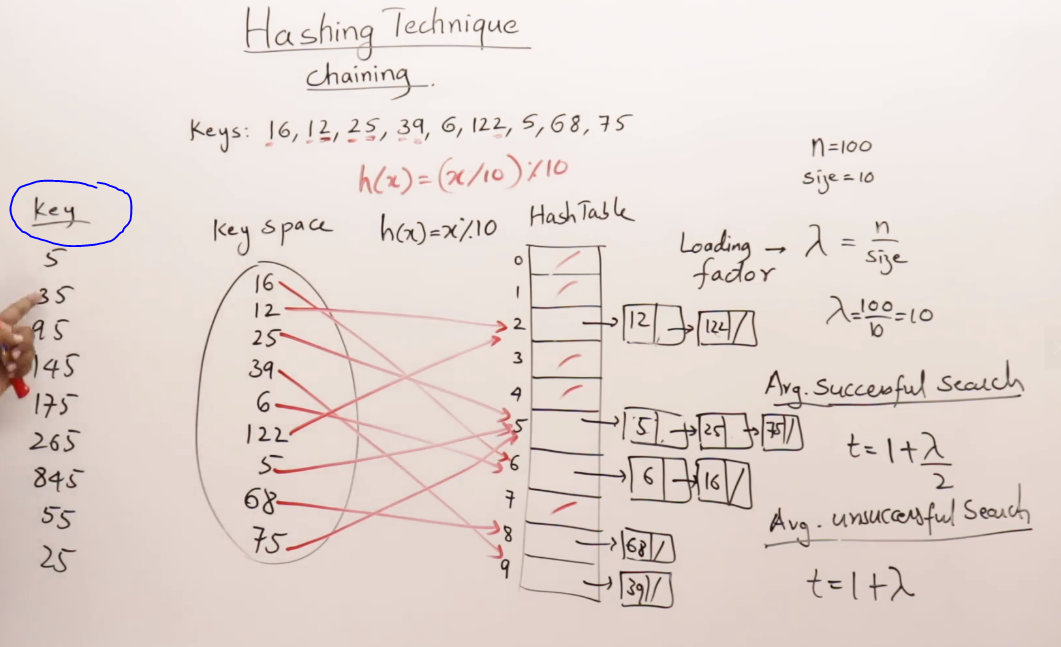 Hashing Technique
chaining.
Keys: 16, 12, 25, 39, 6, 122, 5, 68, 75
h(x)=(x/10)%10
n=100
size=10
key
5
35
95
145
175
265
845
55
25
key space
16
12
25
39
6
122
5
68
75
h(x)=x%10
HashTable
0
1
2 12 122/
3
4
5 5 25 75/
6 6 16/
7
8 68/
9 39/
Loading factor → λ = n/size
λ=100/10=10
Avg. successful search
t=1+λ/2
Avg. unsuccessful search
t=1+λ